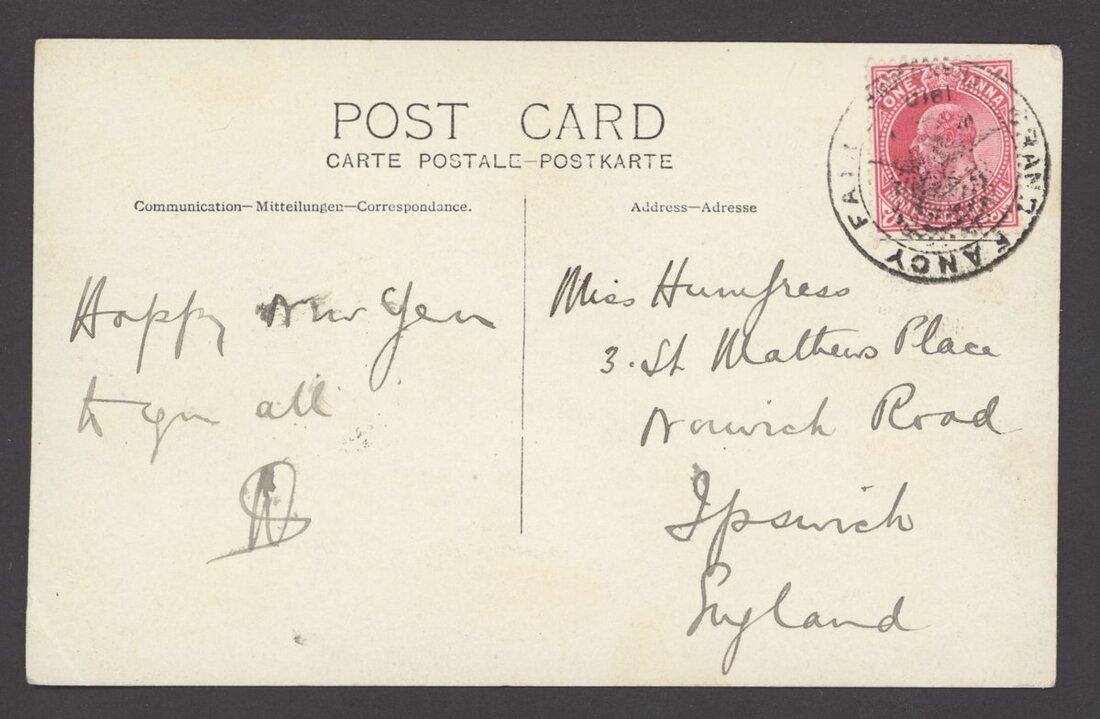 POST CARD
CARTE POSTALE—POSTKARTE
Communication—Mitteilungen—Correspondance.
Address—Adresse
ONE ANNA
GRAND FANCY FAIR
1910
Happy New Year
to you all
Miss Humfress
3. St Mathews Place
Norwich Road
Ipswich
England